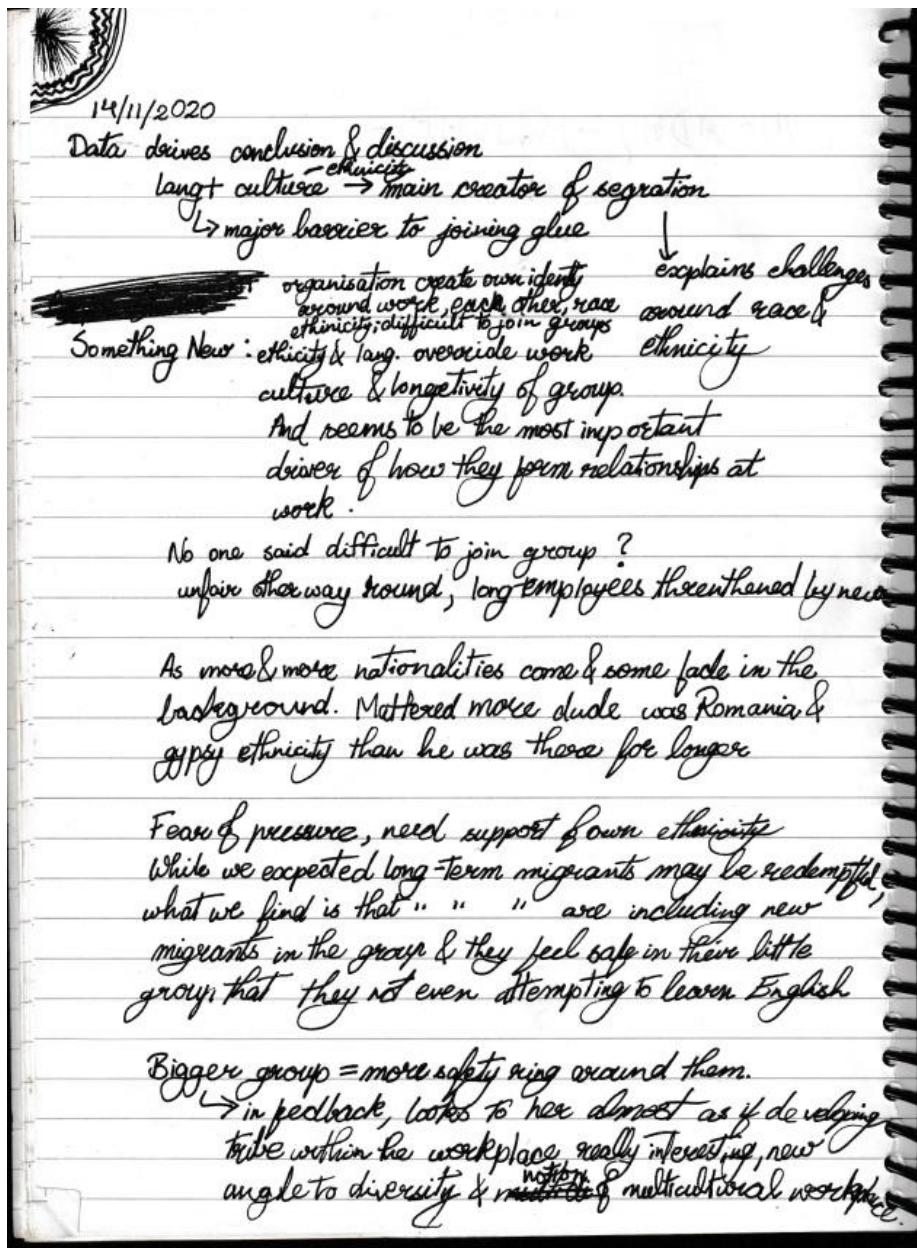 14/11/2020
Data drives conclusion & discussion
- ethnicity
lang + culture → main creator of segration
↳ major barrier to joining glue
↓
explains challenges
around race &
ethnicity
organisation create own identy
around work, each other, race
ethinicity; difficult to join groups
Something New: ethicity & lang. override work
culture & longetivity of group.
And seems to be the most important
driver of how they form relationships at
work.
No one said difficult to join group?
unfair other way round, long employees threnthened by
As more & more nationalities come & some fade in the
background. Mattered more dude was Romania &
gypsy ethnicity than he was there for longer
Fear of pressure, need support of own ethnicity
While we expected long-term migrants may be
what we find is that " " " are including new
migrants in the group & they feel safe in their little
group, that they not even attempting to learn English
Bigger group = more safety ring around them.
↳ in fedback, looks to her almost as if developing
tribe within the workplace, really interesting, new
angle to diversity & notion of multicultural workplace.